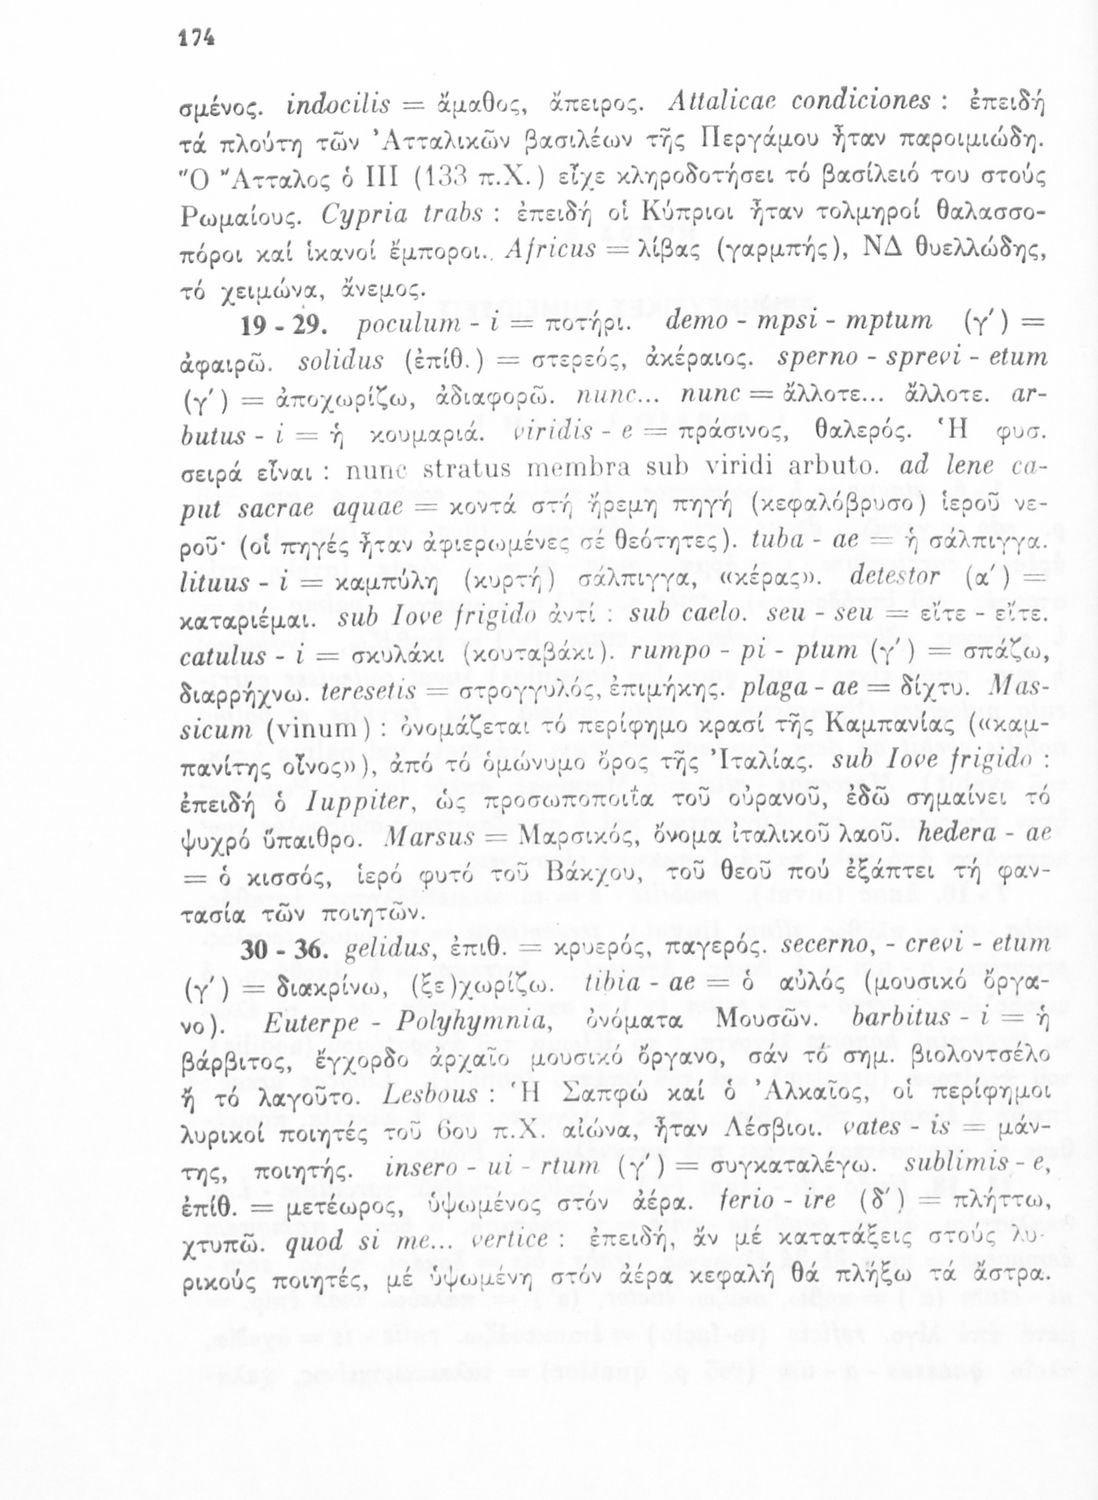 174
σμένος. indocilis = ἄμαθος, ἄπειρος. Attalicae condiciones : ἐπειδή
τά πλούτη τῶν Ἀτταλικῶν βασιλέων τῆς Περγάμου ἦταν παροιμιώδη.
Ὁ Ἄτταλος ὁ III (133 π.Χ.) εἶχε κληροδοτήσει τό βασίλειό του στούς
Ρωμαίους. Cypria trabs : ἐπειδή οἱ Κύπριοι ἦταν τολμηροί θαλασσο-
πόροι καί ἱκανοί ἔμποροι.. Africus = λίβας (γαρμπής), ΝΔ θυελλώδης,
τό χειμώνα, ἄνεμος.
19 - 29. poculum - i = ποτήρι. demo - mpsi - mptum (γ΄) =
ἀφαιρῶ. solidus (ἐπίθ.) = στερεός, ἀκέραιος. sperno - sprevi - etum
(γ΄) = ἀποχωρίζω, ἀδιαφορῶ. nunc... nunc = ἄλλοτε... ἄλλοτε. ar-
butus - i = ἡ κουμαριά. viridis - e = πράσινος, θαλερός. Ἡ φυσ.
σειρά εἶναι : nunc stratus membra sub viridi arbuto. ad lene ca-
put sacrae aquae = κοντά στή ἤρεμη πηγή (κεφαλόβρυσο) ἱεροῦ νε-
ροῦ· (οἱ πηγές ἦταν ἀφιερωμένες σέ θεότητες). tuba - ae = ἡ σάλπιγγα.
lituus - i = καμπύλη (κυρτή) σάλπιγγα, «κέρας». detestor (α΄) =
καταριέμαι. sub Iove frigido ἀντί : sub caelo. seu - seu = εἴτε - εἴτε.
catulus - i = σκυλάκι (κουταβάκι). rumpo - pi - ptum (γ΄) = σπάζω,
διαρρήχνω. teresetis = στρογγυλός, ἐπιμήκης. plaga - ae = δίχτυ. Mas-
sicum (vinum) : ὀνομάζεται τό περίφημο κρασί τῆς Καμπανίας («καμ-
πανίτης οἶνος»), ἀπό τό ὁμώνυμο ὄρος τῆς Ἰταλίας. sub Iove frigido :
ἐπειδή ὁ Iuppiter, ὡς προσωποποιΐα τοῦ οὐρανοῦ, ἐδῶ σημαίνει τό
ψυχρό ὕπαιθρο. Marsus = Μαρσικός, ὄνομα ἰταλικοῦ λαοῦ. hedera - ae
= ὁ κισσός, ἱερό φυτό τοῦ Βάκχου, τοῦ θεοῦ πού ἐξάπτει τή φαν-
τασία τῶν ποιητῶν.
30 - 36. gelidus, ἐπιθ. = κρυερός, παγερός. secerno, - crevi - etum
(γ΄) = διακρίνω, (ξε)χωρίζω. tibia - ae = ὁ αὐλός (μουσικό ὄργα-
νο). Euterpe - Polyhymnia, ὀνόματα Μουσῶν. barbitus - i = ἡ
βάρβιτος, ἔγχορδο ἀρχαῖο μουσικό ὄργανο, σάν τό σημ. βιολοντσέλο
ἤ τό λαγοῦτο. Lesbous : Ἡ Σαπφώ καί ὁ Ἀλκαῖος, οἱ περίφημοι
λυρικοί ποιητές τοῦ 6ου π.Χ. αἰώνα, ἦταν Λέσβιοι. vates - is = μάν-
της, ποιητής. insero - ui - rtum (γ΄) = συγκαταλέγω. sublimis - e,
ἐπίθ. = μετέωρος, ὑψωμένος στόν ἀέρα. ferio - ire (δ΄) = πλήττω,
χτυπῶ. quod si me... vertice : ἐπειδή, ἄν μέ κατατάξεις στούς λυ-
ρικούς ποιητές, μέ ὑψωμένη στόν ἀέρα κεφαλή θά πλήξω τά ἄστρα.